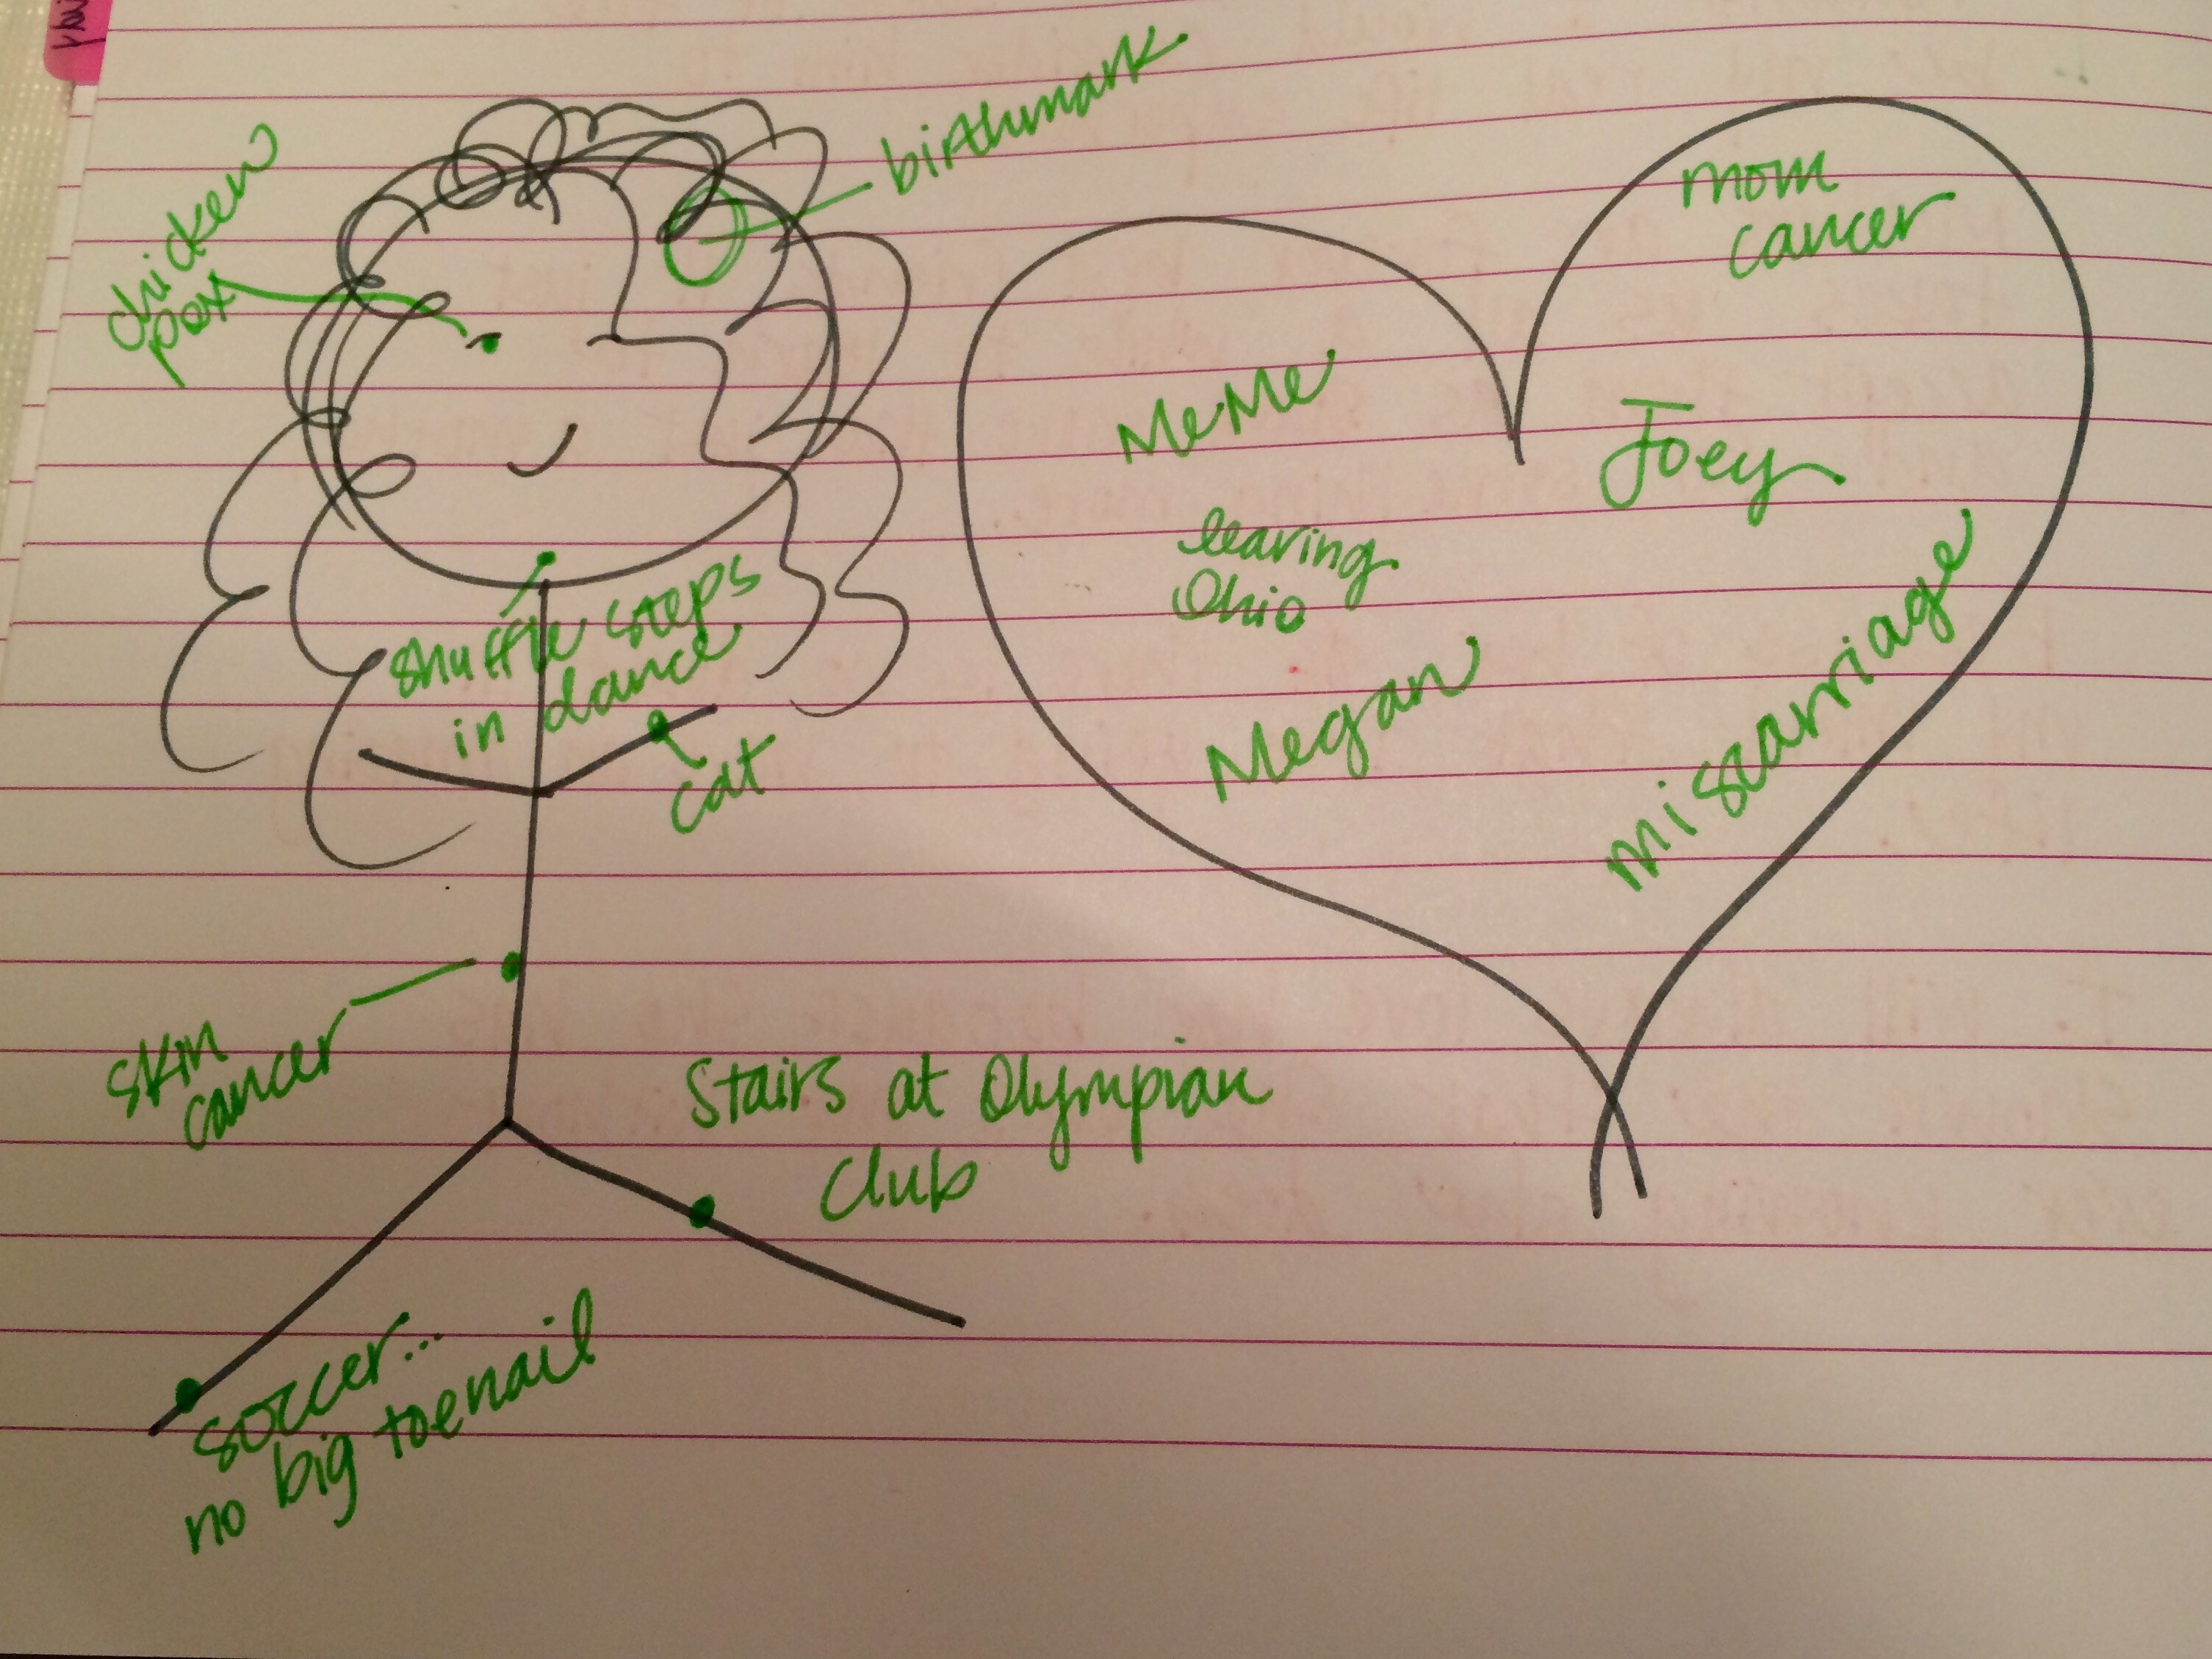 birthmark
chicken
pox
shuffle steps
in dance
cat
skin
cancer
Stairs at Olympian
Club
soccer...
no big toenail
mom
cancer
MeMe
Joey
leaving
Ohio
Megan
miscarriage